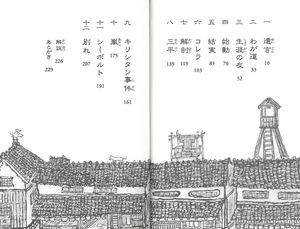 一 遺言 10
二 わが道 33
三 生涯の友 52
四 始動 70
五 結実 83
六 コレラ 103
七 解剖 119
八 三平 139
九 キリシタン事件 161
十 嵐 175
十一 シーボルト 191
十二 別れ 207
解説 226
あとがき 229